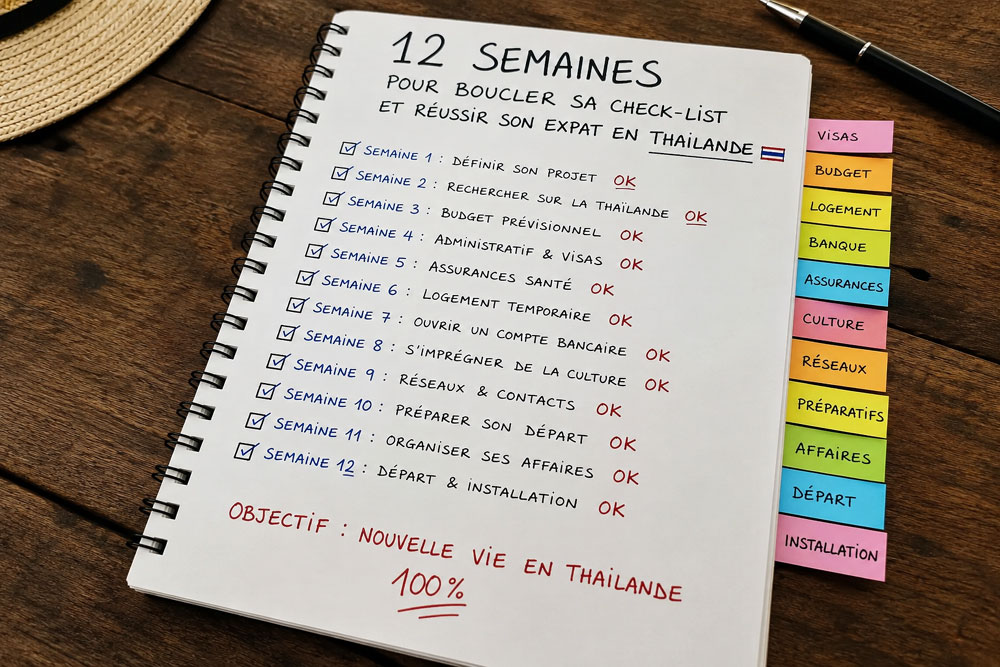 12 SEMAINES
POUR BOUCLER SA CHECK-LIST
ET RÉUSSIR SON EXPAT EN THAILANDE
SEMAINE 1 : DÉFINIR SON PROJET OK
SEMAINE 2 : RECHERCHER SUR LA THAÏLANDE OK
SEMAINE 3 : BUDGET PRÉVISIONNEL OK
SEMAINE 4 : ADMINISTRATIF & VISAS OK
SEMAINE 5 : ASSURANCES SANTÉ OK
SEMAINE 6 : LOGEMENT TEMPORAIRE OK
SEMAINE 7 : OUVRIR UN COMPTE BANCAIRE OK
SEMAINE 8 : S'IMPRÉGNER DE LA CULTURE OK
SEMAINE 9 : RÉSEAUX & CONTACTS OK
SEMAINE 10 : PRÉPARER SON DÉPART OK
SEMAINE 11 : ORGANISER SES AFFAIRES OK
SEMAINE 12 : DÉPART & INSTALLATION OK
OBJECTIF : NOUVELLE VIE EN THAILANDE
100%
VISAS
BUDGET
LOGEMENT
BANQUE
ASSURANCES
CULTURE
RÉSEAUX
PRÉPARATIFS
AFFAIRES
DÉPART
INSTALLATION